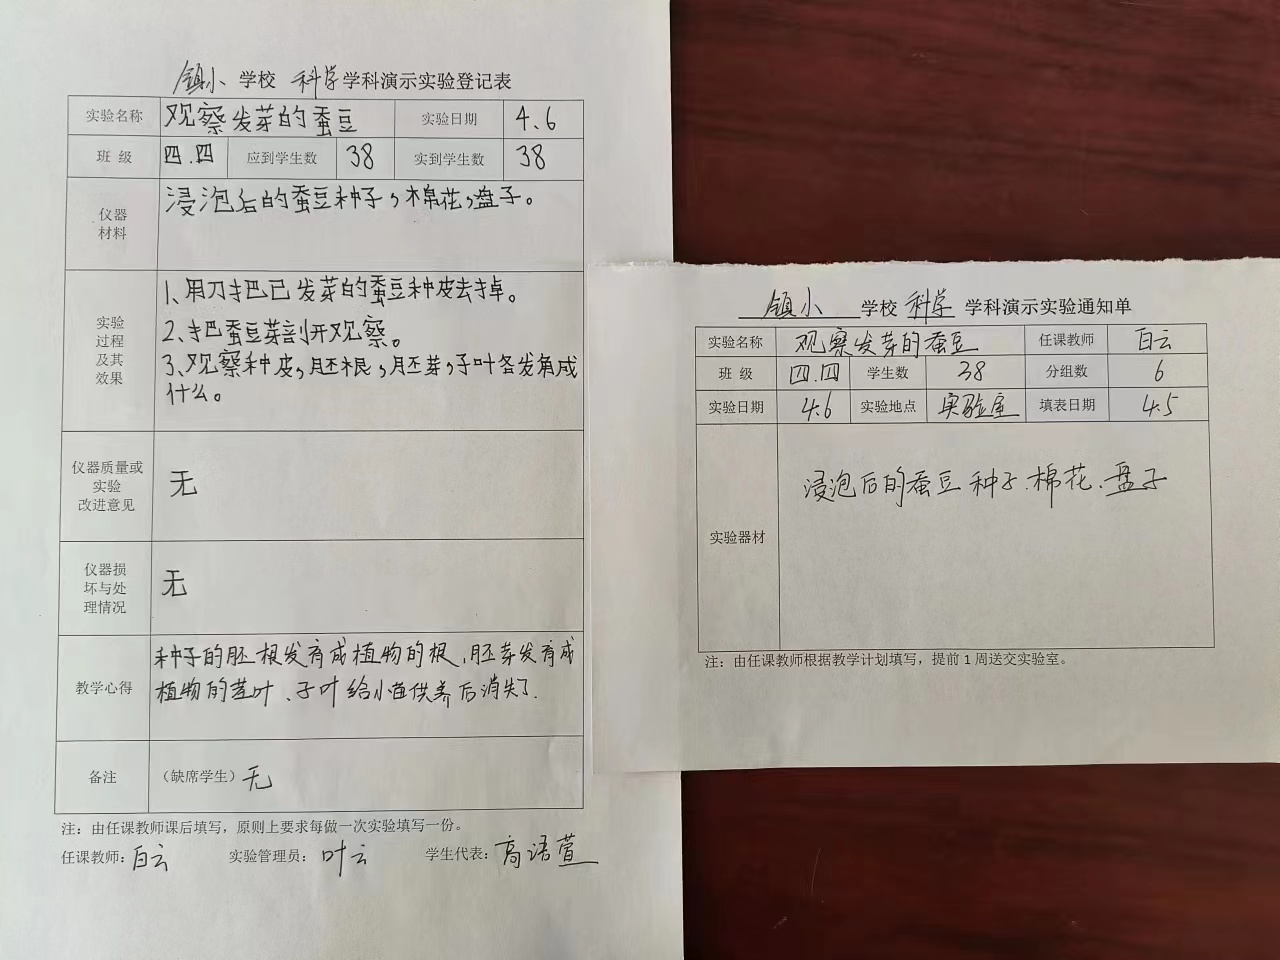 镇小 学校 科学 学科演示实验登记表
实验名称 观察发芽的蚕豆 实验日期 4.6
班 级 四.四 应到学生数 38 实到学生数 38
仪器
材料
浸泡后的蚕豆种子,棉花,盘子。
实验
过程
及其
效果
1、用刀把已发芽的蚕豆种皮去掉。
2、把蚕豆芽剖开观察。
3、观察种皮,胚根,胚芽,子叶各发育成
什么。
仪器质量或
实验
改进意见
无
仪器损
坏与处
理情况
无
教学心得
种子的胚根发育成植物的根,胚芽发育成
植物的茎叶、子叶给小苗供养后消失了.
备注 (缺席学生) 无
注:由任课教师课后填写,原则上要求每做一次实验填写一份。
任课教师:白云 实验管理员:叶云 学生代表:高语萱
镇小 学校 科学 学科演示实验通知单
实验名称 观察发芽的蚕豆 任课教师 白云
班 级 四.四 学生数 38 分组数 6
实验日期 4.6 实验地点 实验室 填表日期 4.5
实验器材
浸泡后的蚕豆种子.棉花.盘子
注:由任课教师根据教学计划填写,提前1周送交实验室。